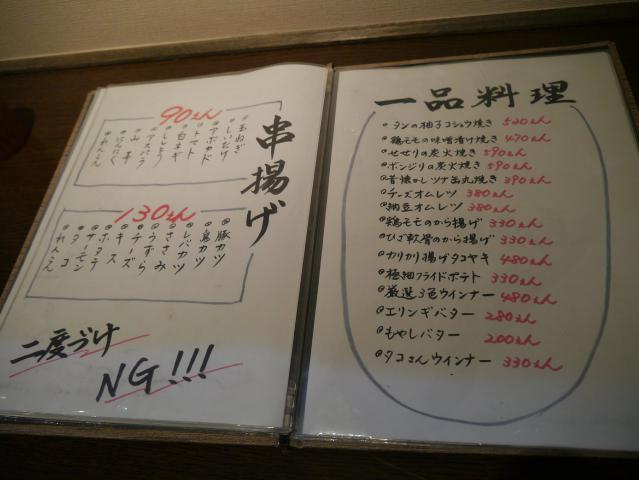 串揚げ
90えん
玉ねぎ
しいたけ
アボカド
トマト
白ネギ
ししとう
アスパラ
山芋
にんにく
れんこん
130えん
豚カツ
鳥カツ
レバカツ
ささみ
うずら
チーズ
キス
ホタテ
サーモン
タコ
二度づけ
NG!!!
一品料理
タンの柚子コショウ焼き 520えん
鶏モモの味噌漬け焼き 470えん
せせりの炭火焼き 590えん
ボンジリの炭火焼き 590えん
昔懐かしツナ缶丸焼き 390えん
チーズオムレツ 380えん
納豆オムレツ 380えん
鶏モモのから揚げ 330えん
ひざ軟骨のから揚げ 330えん
カリカリ揚げタコヤキ 480えん
極細フライドポテト 330えん
厳選3色ウインナー 480えん
エリンギバター 280えん
もやしバター 200えん
タコさんウインナー 330えん